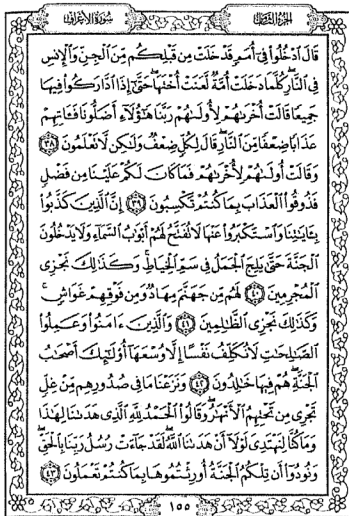 سورة الأعراف
الجزء الثامن
قَالَ ٱدۡخُلُواْ فِيٓ أُمَمٖ قَدۡ خَلَتۡ مِن قَبۡلِكُم مِّنَ ٱلۡجِنِّ وَٱلۡإِنسِ
فِي ٱلنَّارِۖ كُلَّمَا دَخَلَتۡ أُمَّةٞ لَّعَنَتۡ أُخۡتَهَاۖ حَتَّىٰٓ إِذَا ٱدَّارَكُواْ فِيهَا
جَمِيعٗا قَالَتۡ أُخۡرَىٰهُمۡ لِأُولَىٰهُمۡ رَبَّنَا هَٰٓؤُلَآءِ أَضَلُّونَا فَـَٔاتِهِمۡ
عَذَابٗا ضِعۡفٗا مِّنَ ٱلنَّارِۖ قَالَ لِكُلّٖ ضِعۡفٞ وَلَٰكِن لَّا تَعۡلَمُونَ ٣٨
وَقَالَتۡ أُولَىٰهُمۡ لِأُخۡرَىٰهُمۡ فَمَا كَانَ لَكُمۡ عَلَيۡنَا مِن فَضۡلٖ
فَذُوقُواْ ٱلۡعَذَابَ بِمَا كُنتُمۡ تَكۡسِبُونَ ٣٩ إِنَّ ٱلَّذِينَ كَذَّبُواْ
بِـَٔايَٰتِنَا وَٱسۡتَكۡبَرُواْ عَنۡهَا لَا تُفَتَّحُ لَهُمۡ أَبۡوَٰبُ ٱلسَّمَآءِ وَلَا يَدۡخُلُونَ
ٱلۡجَنَّةَ حَتَّىٰ يَلِجَ ٱلۡجَمَلُ فِي سَمِّ ٱلۡخِيَاطِۚ وَكَذَٰلِكَ نَجۡزِي
ٱلۡمُجۡرِمِينَ ٤٠ لَهُم مِّن جَهَنَّمَ مِهَادٞ وَمِن فَوۡقِهِمۡ غَوَاشٖۚ
وَكَذَٰلِكَ نَجۡزِي ٱلظَّٰلِمِينَ ٤١ وَٱلَّذِينَ ءَامَنُواْ وَعَمِلُواْ
ٱلصَّٰلِحَٰتِ لَا نُكَلِّفُ نَفۡسًا إِلَّا وُسۡعَهَآ أُوْلَٰٓئِكَ أَصۡحَٰبُ
ٱلۡجَنَّةِۖ هُمۡ فِيهَا خَٰلِدُونَ ٤٢ وَنَزَعۡنَا مَا فِي صُدُورِهِم مِّنۡ غِلّٖ
تَجۡرِي مِن تَحۡتِهِمُ ٱلۡأَنۡهَٰرُۖ وَقَالُواْ ٱلۡحَمۡدُ لِلَّهِ ٱلَّذِي هَدَىٰنَا لِهَٰذَا
وَمَا كُنَّا لِنَهۡتَدِيَ لَوۡلَآ أَنۡ هَدَىٰنَا ٱللَّهُۖ لَقَدۡ جَآءَتۡ رُسُلُ رَبِّنَا بِٱلۡحَقِّۖ
وَنُودُوٓاْ أَن تِلۡكُمُ ٱلۡجَنَّةُ أُورِثۡتُمُوهَا بِمَا كُنتُمۡ تَعۡمَلُونَ ٤٣
١٥٥